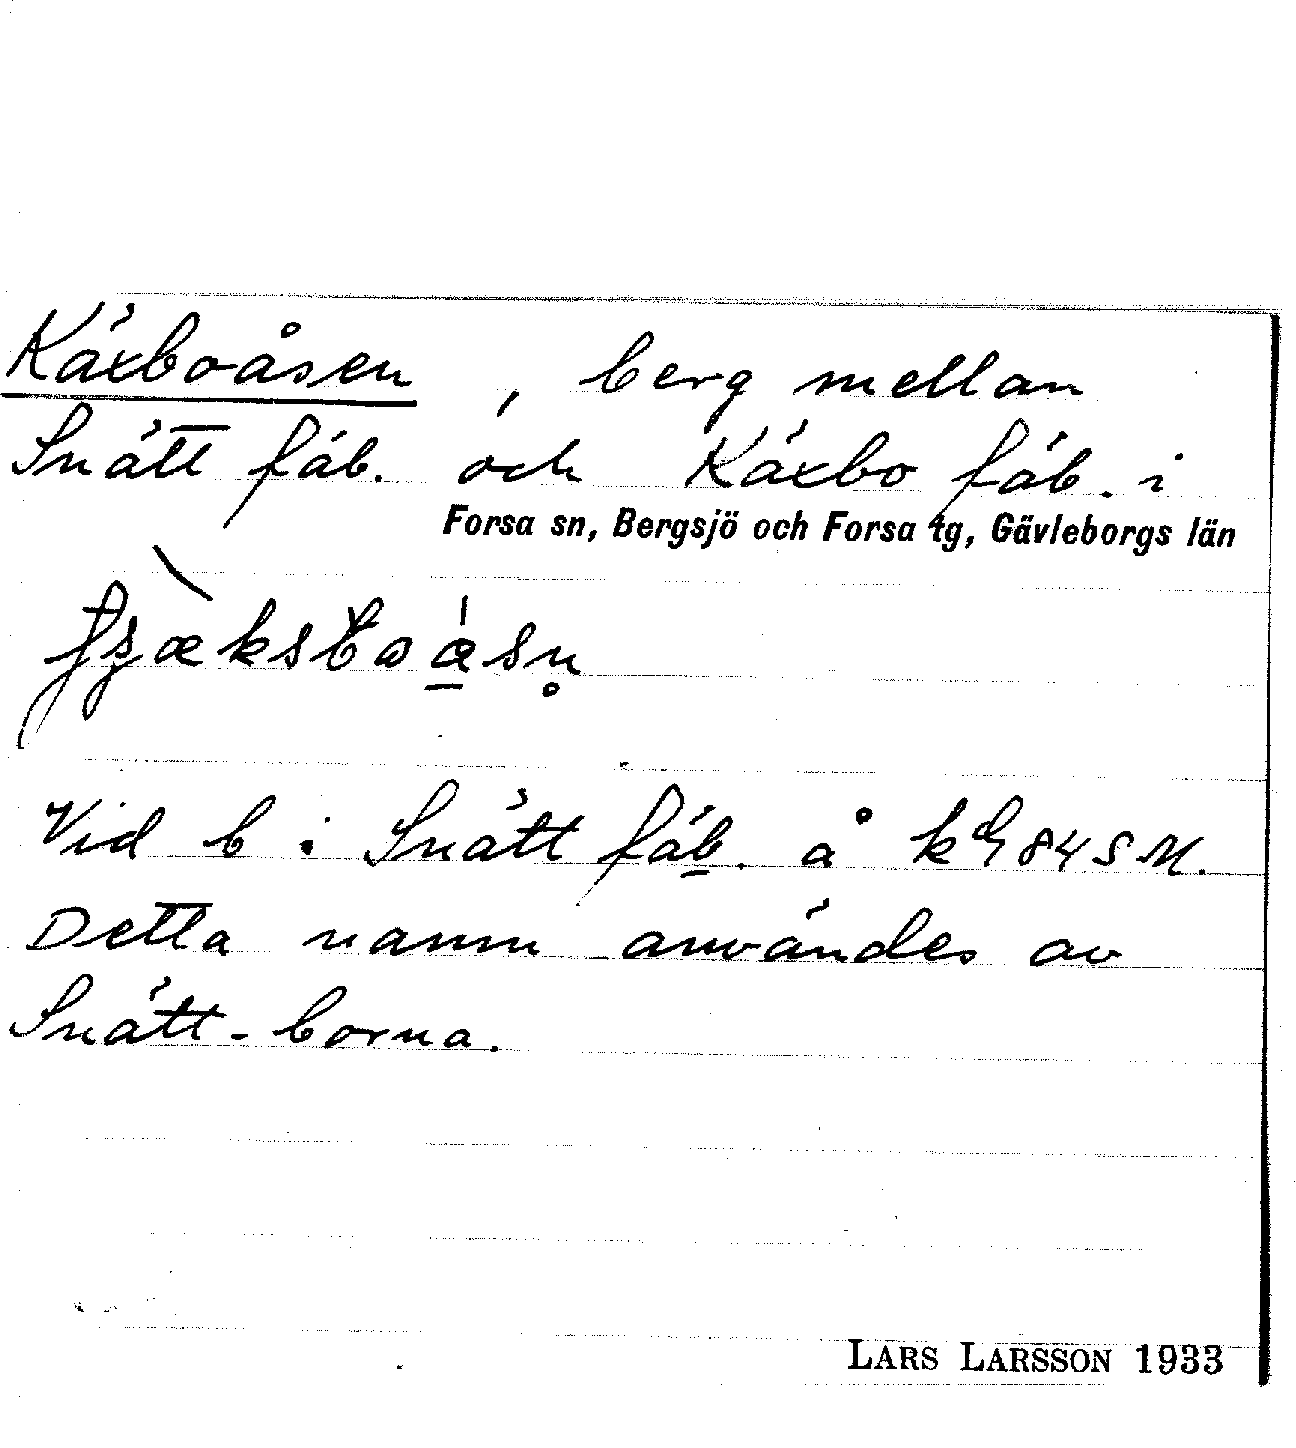 Käxboåsen, berg mellan
Snätt fäb. och Käxbo fäb. i
Forsa sn, Bergsjö och Forsa tg, Gävleborgs län
Vid b i Snätt fäb. å 84 SM.
Detta namn användes av
Snätt-borna.
LARS LARSSON 1933